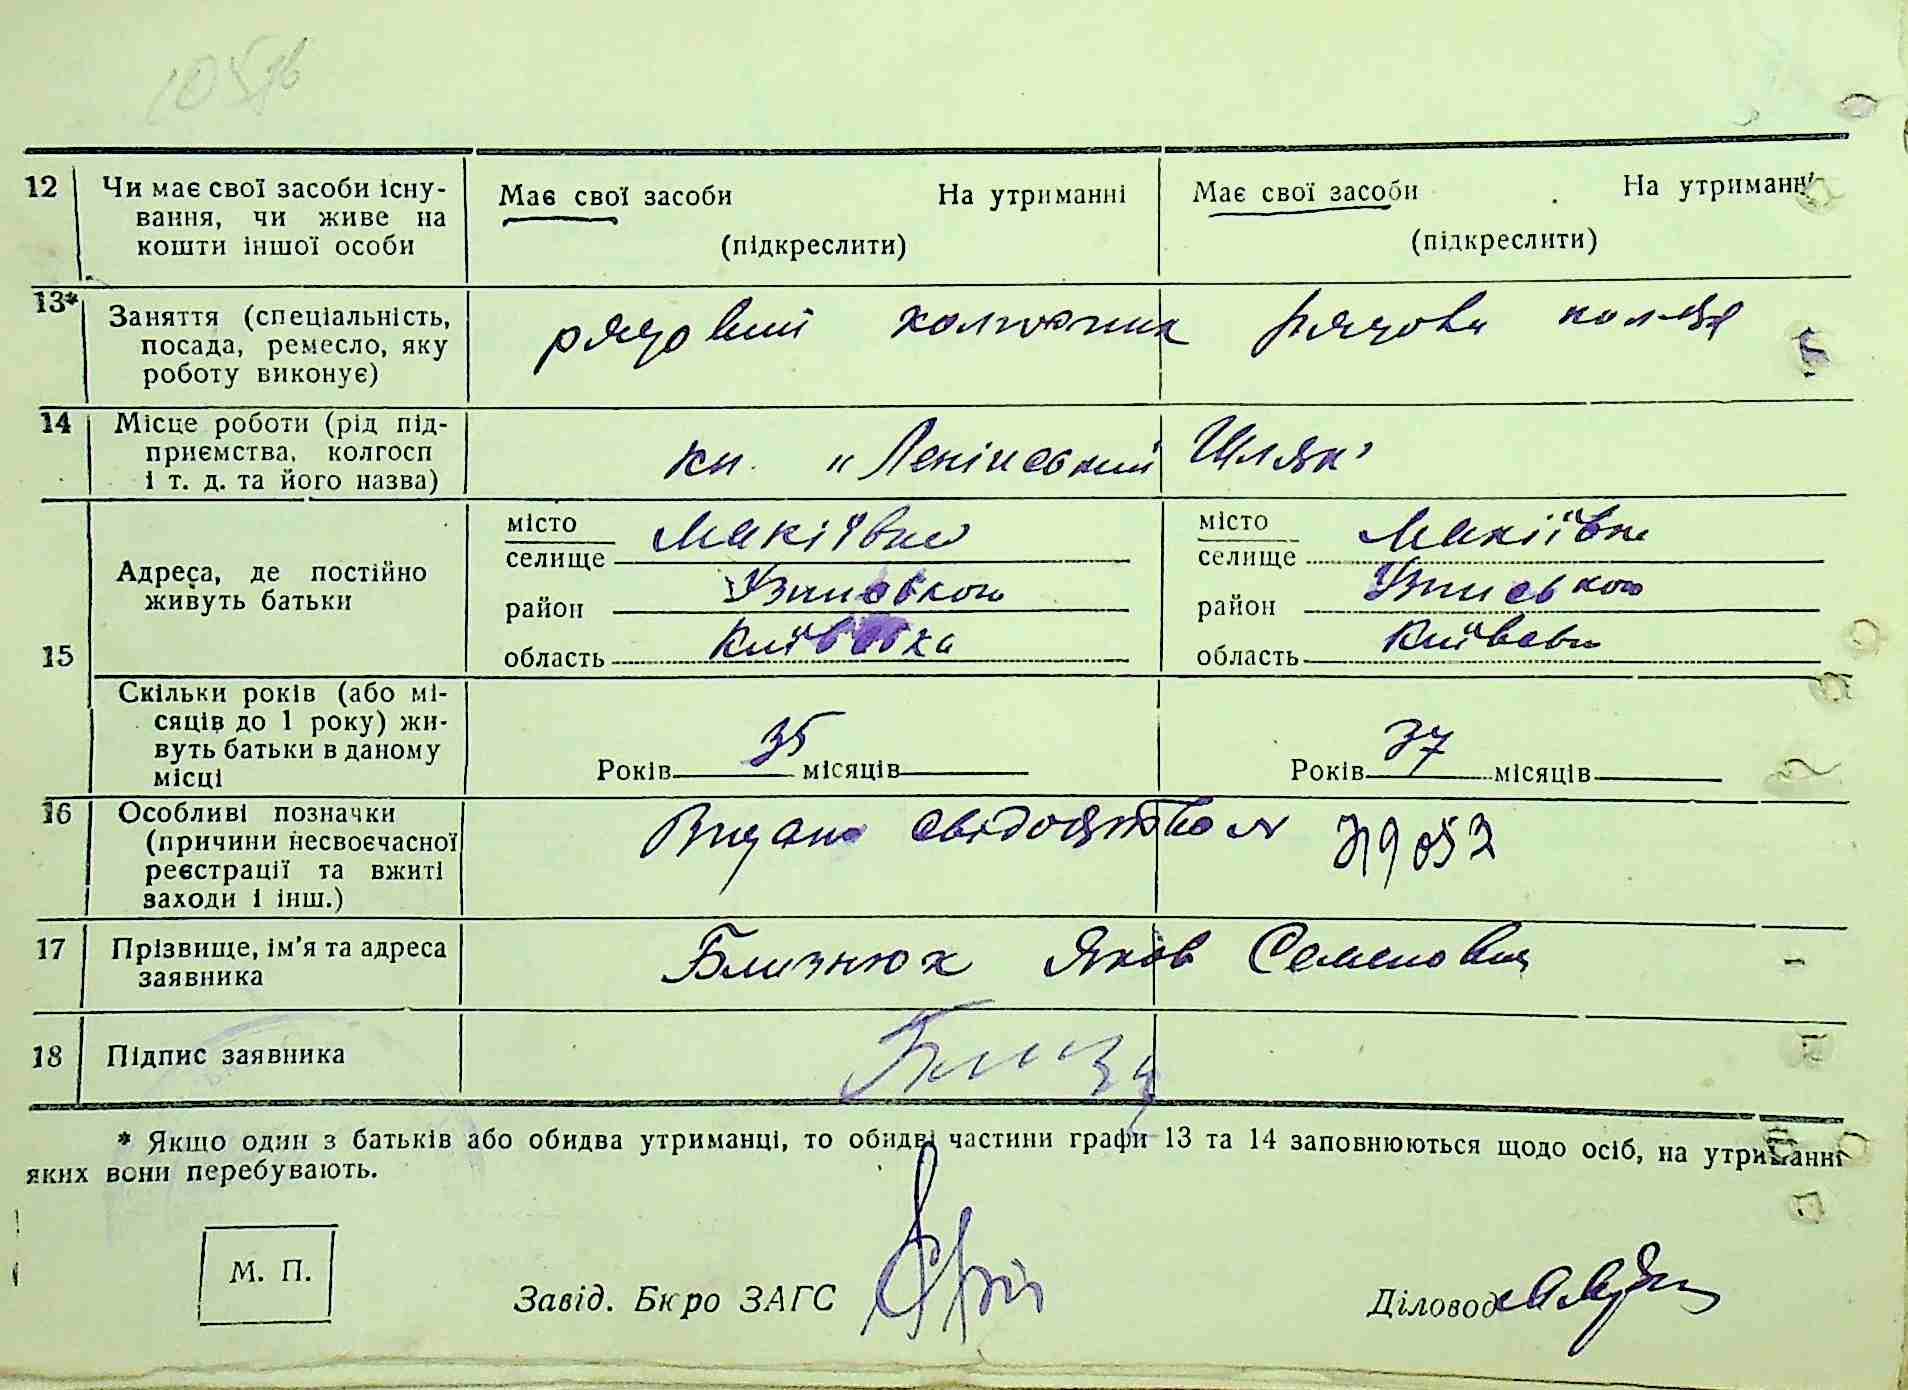 12 Чи має свої засоби існу- Має свої засоби На утриманні Має свої засоби На утриманні
вання, чи живе на
кошти іншої особи (підкреслити) (підкреслити)
13* Заняття (спеціальність, рядовий колгоспник рядова
посада, ремесло, яку
роботу виконує)
14 Місце роботи (рід під-
приємства, колгосп "Ленінський Шлях"
і т. д. та його назва)
місто Макіївка місто Макіївка
селище селище
Адреса, де постійно
живуть батьки район район
15 область Київська область
Скільки років (або мі-
сяців до 1 року) жи-
вуть батьки в даному
місці Років 35 місяців Років 37 місяців
16 Особливі позначки Видано свідоцтво №
(причини несвоєчасної
реєстрації та вжиті
заходи і інш.)
17 Прізвище, ім'я та адреса Близнюк Яков Семенович
заявника
18 Підпис заявника
* Якщо один з батьків або обидва утриманці, то обидві частини графи 13 та 14 заповнюються щодо осіб, на утриманні
яких вони перебувають.
М. П.
Завід. Бюро ЗАГС Діловод